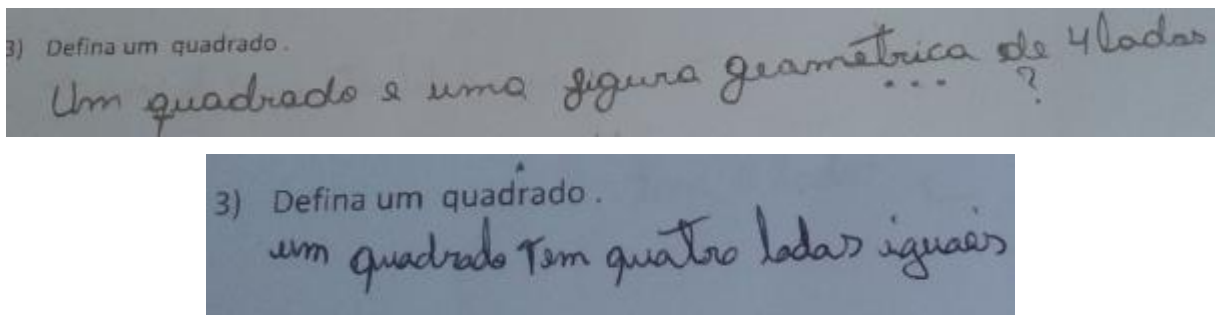 3) Defina um quadrado.
Um quadrado e uma figura geamétrica de 4 lados
... ?
3) Defina um quadrado.
um quadrado Tem quatro lados iguais